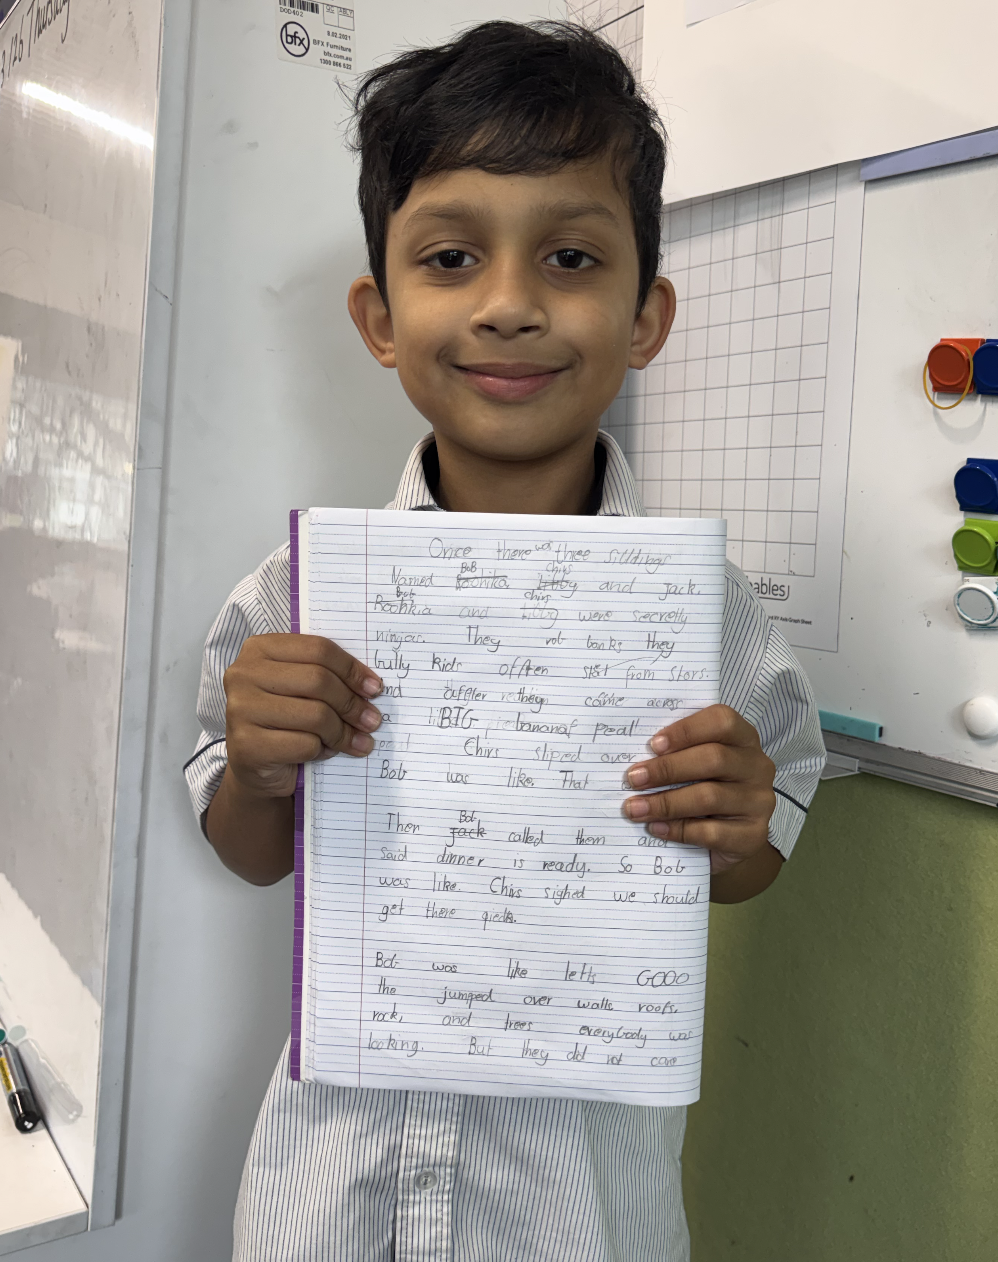 3/20 Thursday
DOD402
9.02.2021
bfx
BFX Furniture
bfx.com.au
1300 866 622
Once there was three silldings
Named Roohika Bob Libby Chirs and Jack.
Roohkia bob and Libby chirs were secretly
ningas. They rob banks they
bully kids offten from stors.
and aftter they came across
a BIG bananaf peal!
Chirs sliped over
Bob was like. That
Then Jack Bob called them and
said dinner is ready. So Bob
was like. Chirs sighed we should
get there
Bob was like letts GOOO
the jumped over walls roofs,
rock, and trees everybody was
looking. But they did not care
ables